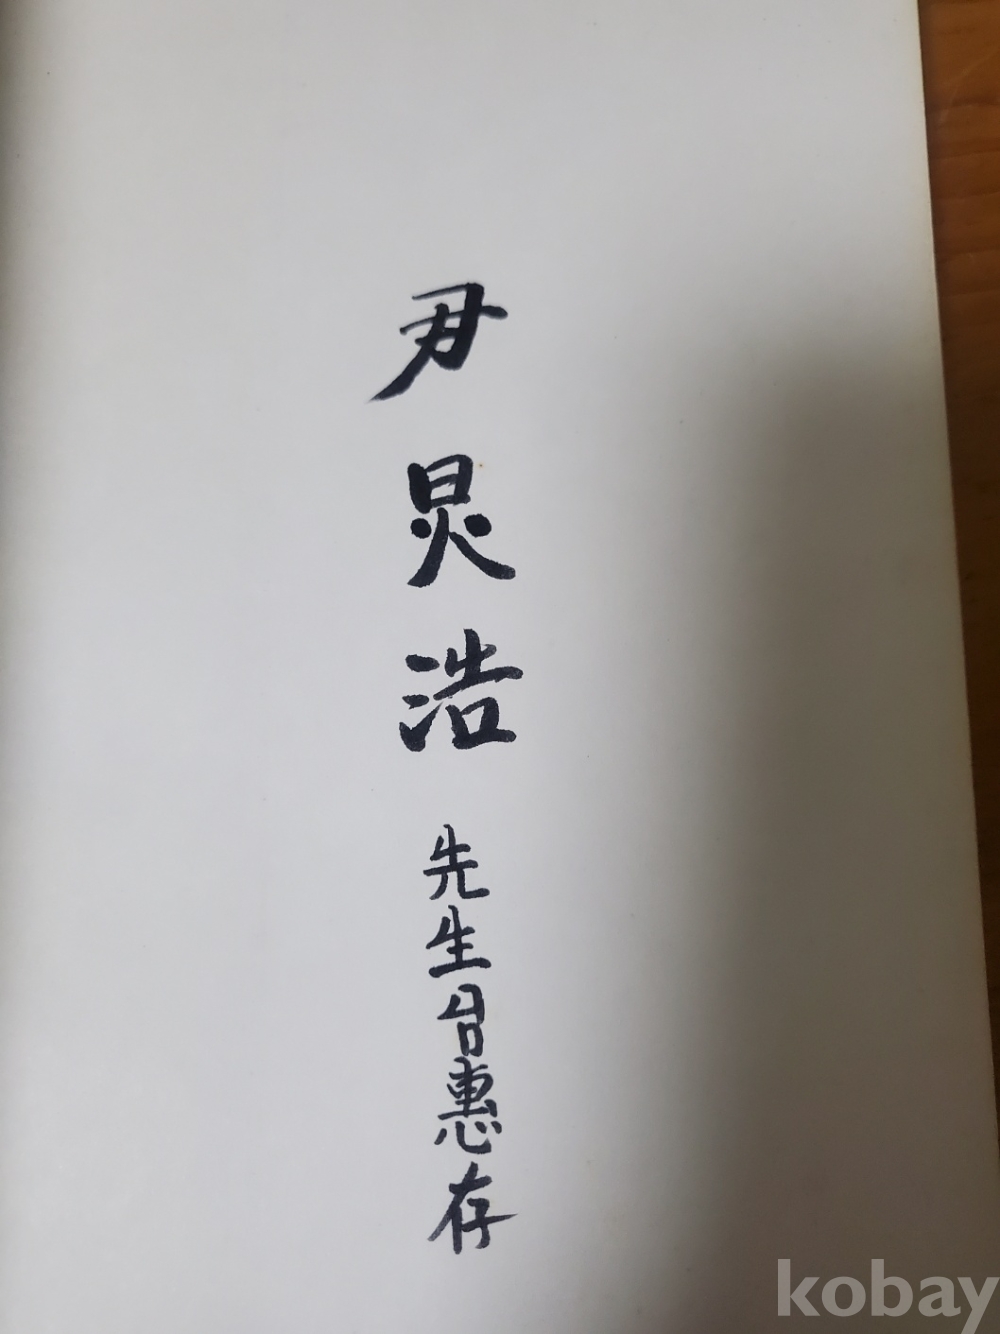 尹炅浩先生惠存
kobay